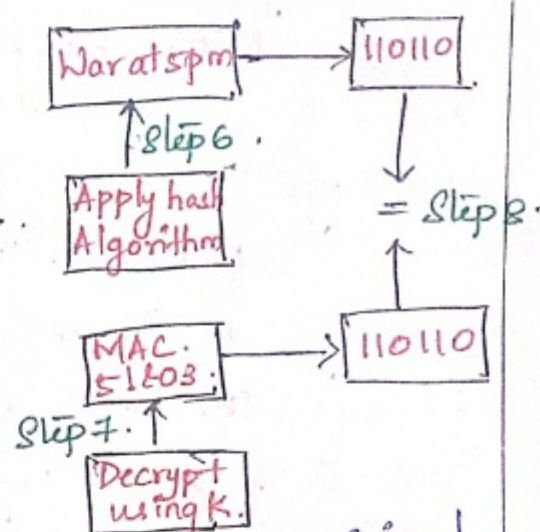 War at 5pm
110110
Step 6.
Apply hash
Algorithm
= Step 8.
MAC.
51203.
110110
Step 7.
Decrypt
using K.